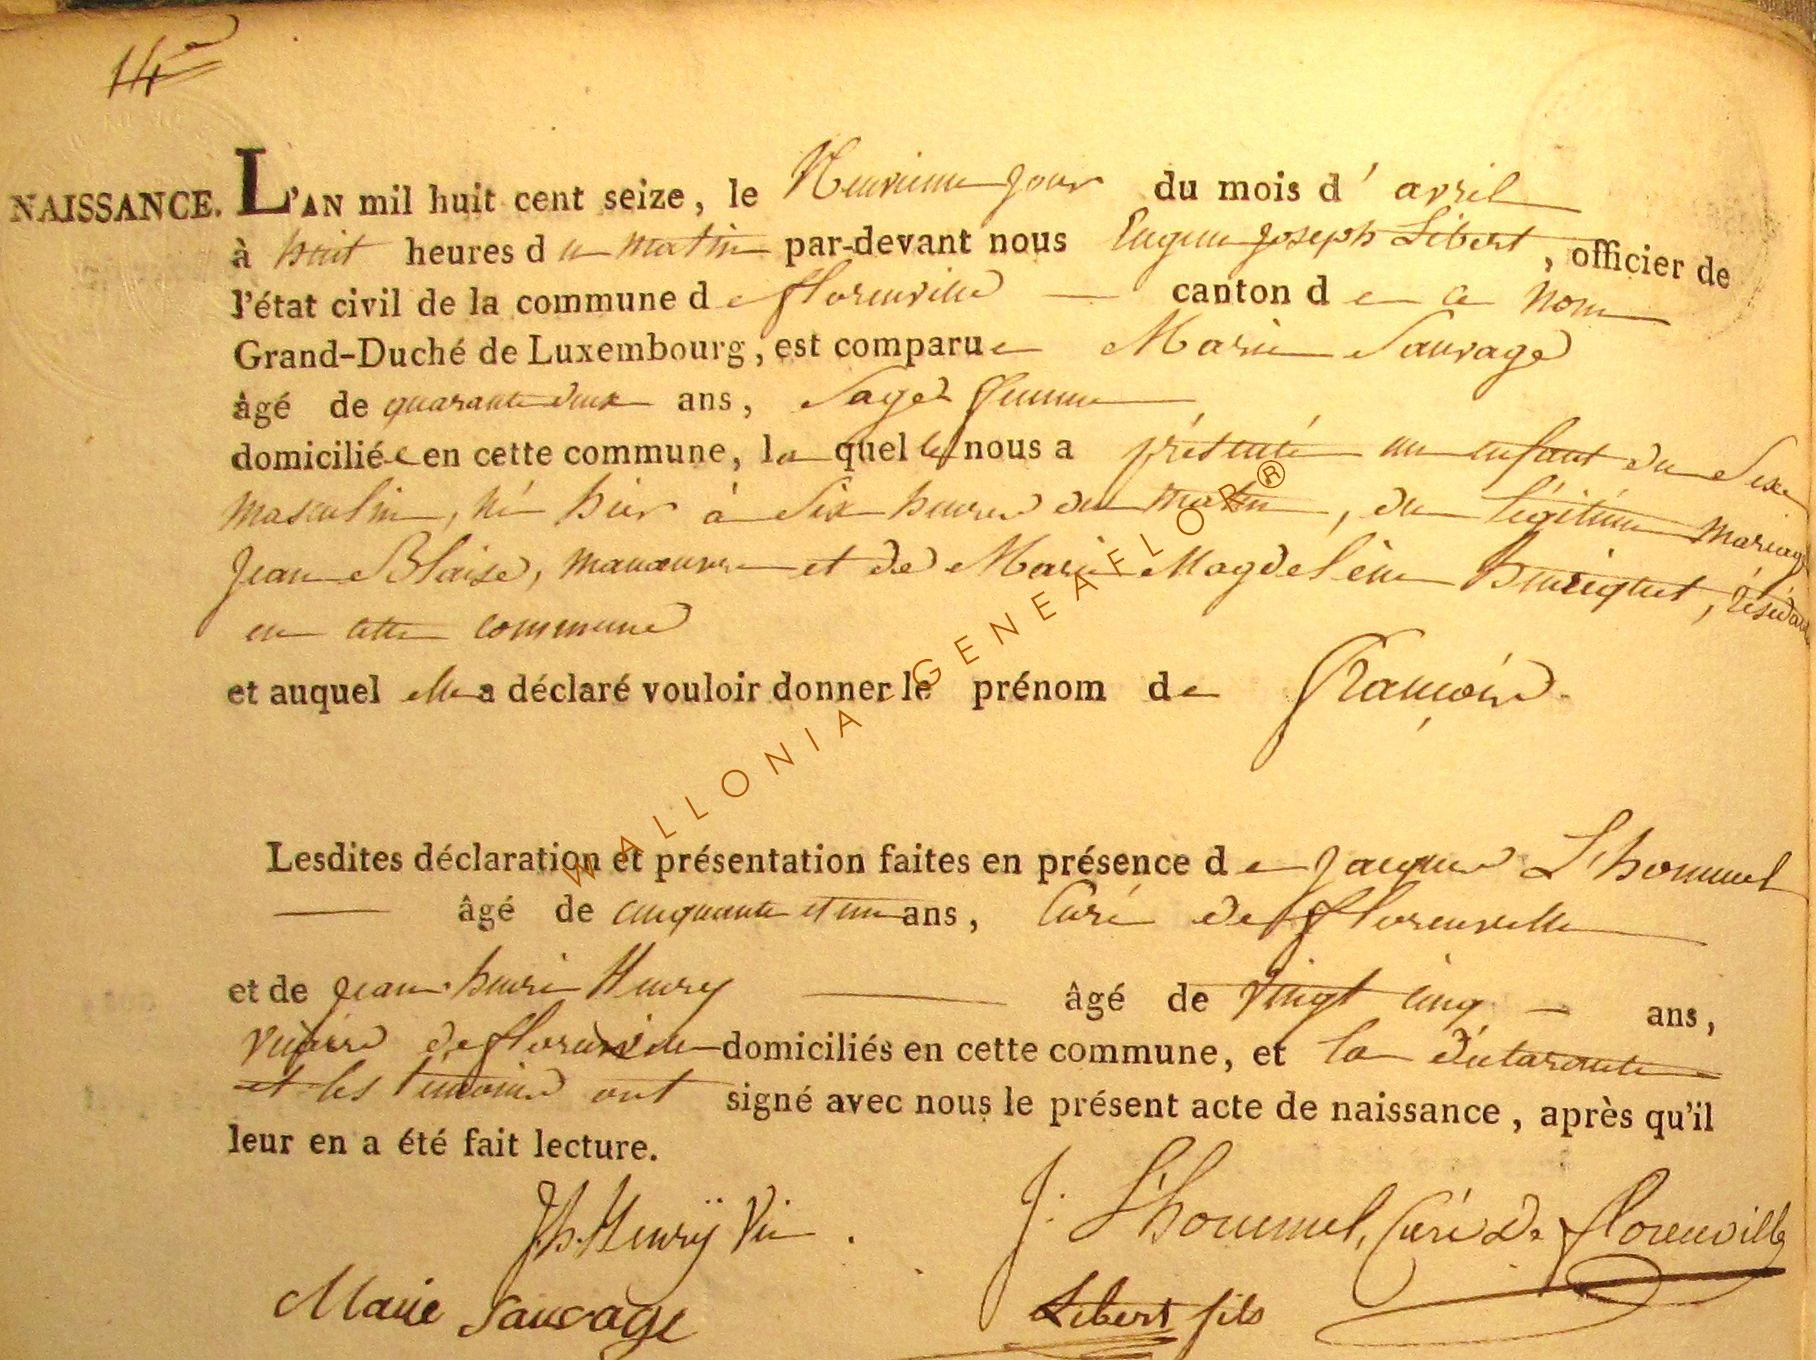 14
NAISSANCE. L'AN mil huit cent seize, le Neuvieme jour du mois d' avril
à huit heures du matin par-devant nous Eugene Joseph Libert, officier de
l'état civil de la commune de florenville — canton de ce nom
Grand-Duché de Luxembourg, est comparue Marie Sauvage
âgé de quarante deux ans, Sage femme
domiciliée en cette commune, laquelle nous a présenté un enfant du Sexe
masculin, né hier à Six heures du matin, du légitime mariage
Jean Blaise, manœuvre et de Marie Magdelène Buriquet, résidant
en cette commune
et auquel elle a déclaré vouloir donner le prénom de François.
Lesdites déclaration et présentation faites en présence de Jacques L'hommel
— âgé de cinquante et un ans, Curé de florenville
et de jean henri Henry — âgé de vingt cinq — ans,
vicaire de florenville domiciliés en cette commune, et la déclarante
et les temoins ont signé avec nous le présent acte de naissance, après qu'il
leur en a été fait lecture.
J.h. Henrÿ Vic. J. L'hommel, Curé de florenville
Marie Sauvage Libert fils
WALLONIA GENEAFLOR ®